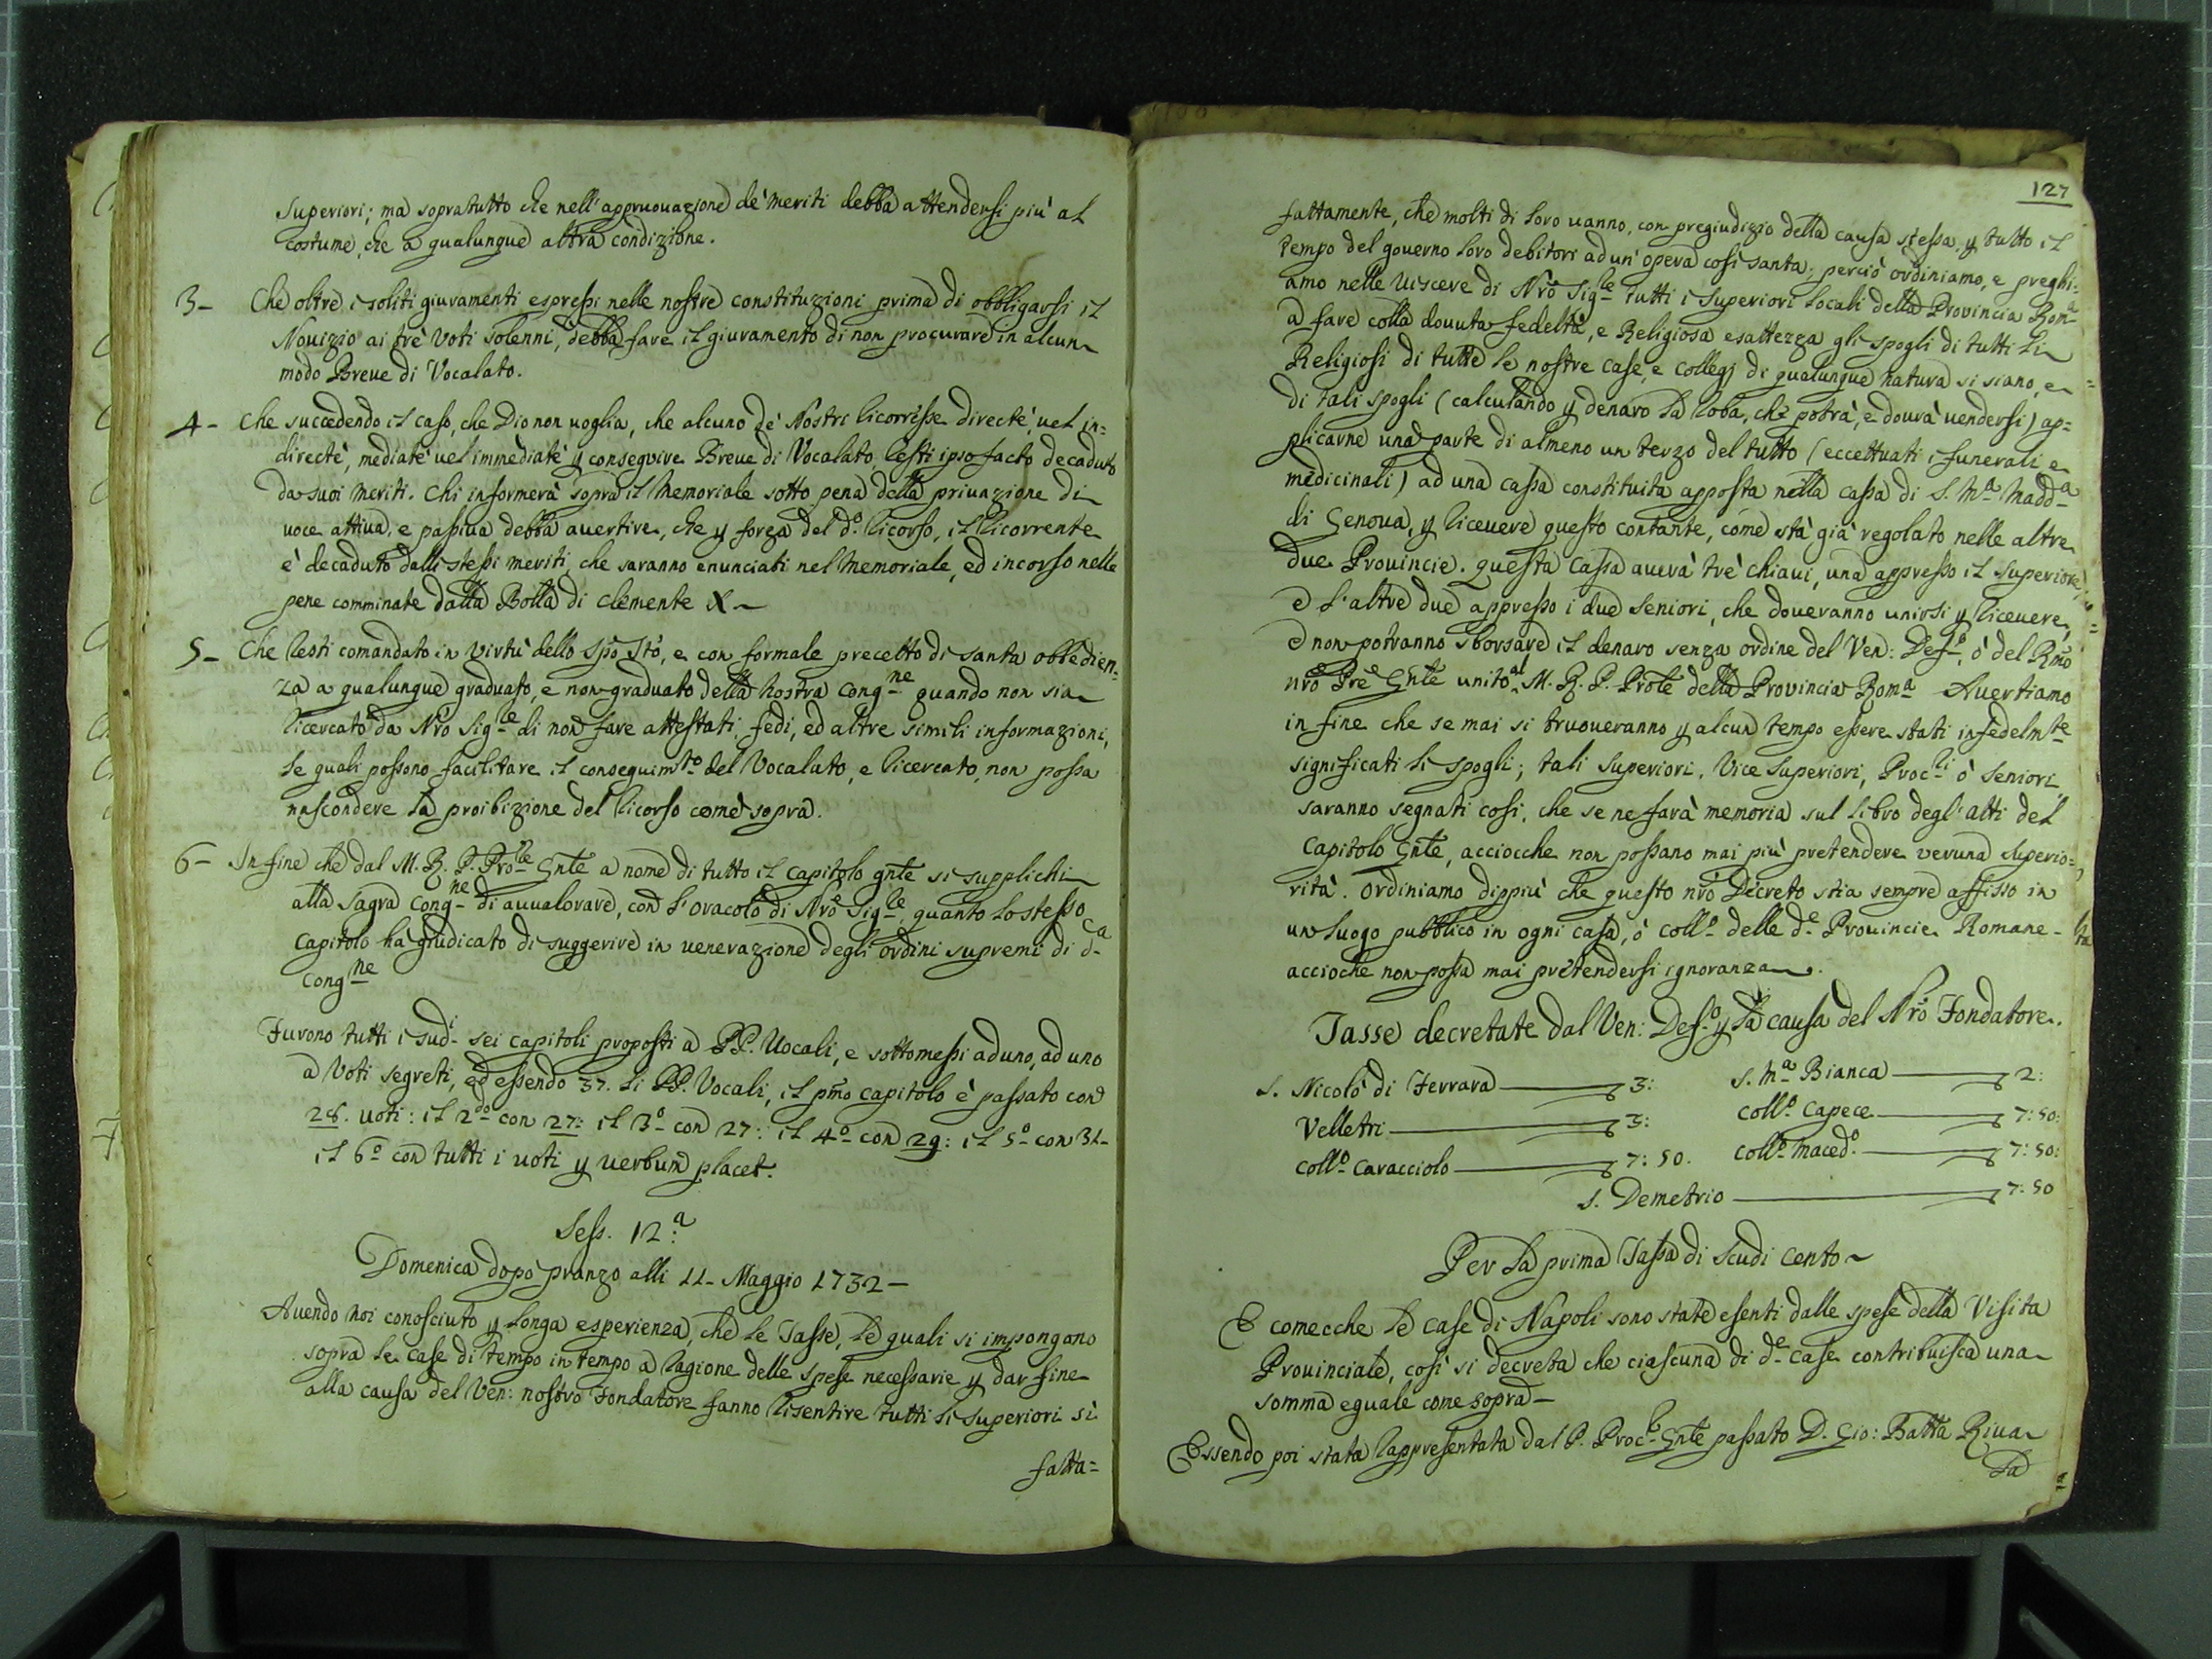 Superiori; ma sopratutto che nell'appruouazione de' meriti debba attendersi più al
costume, che a qualunque altra condizione.
3- Che oltre i soliti giuramenti espressi nelle nostre constituzioni prima di obbligarsi il
Nouizio ai trè Voti solenni, debba fare il giuramento di non procurare in alcun
modo Breue di Vocalato.
4- Che succedendo il caso, che Dio non uoglia, che alcuno de' Nostri ricorresse directè, uel in=
directè, mediatè uel immediatè p conseguire Breue di Vocalato, resti ipso facto decaduto
da suoi meriti. Chi informerà sopra il Memoriale sotto pena della priuazione di
uoce attiua, e passiua debba auertire, che p forza del d.º ricorso, il ricorrente
è decaduto dalli stessi meriti, che saranno enunciati nel Memoriale, ed incorso nelle
pene comminate dalla Bolla di Clemente X-
5- Che resti comandato in Virtù dello Spò Stò, e con formale precetto di santa obbedien=
za a qualunque graduato, e non graduato della Nostra Cong.ne quando non sia
ricercato da Nrò Sig.re di non fare attestati, fedi, ed altre simili informazioni,
le quali possono facilitare il conseguim.to del Vocalato, e ricercato, non possa
nascondere la proibizione del ricorso come sopra.
6- In fine che dal M. R. P. Pro.le Gnte a nome di tutto il Capitolo gnte si supplichi
alla Sagra Cong.ne di auualorare, con l'oracolo di Nrò Sig.re, quanto lo stesso
Capitolo hà giudicato di suggerire in uenerazione degli ordini supremi di d.ca
Cong.ne
Furono tutti i sud.i sei capitoli proposti a PP. Uocali, e sottomessi ad uno, ad uno
a Voti segreti, ed essendo 37. li PP. Vocali, il pm̃o capitolo è passato con
28. uoti: il 2.do con 27: il 3.º con 27: il 4.º con 29: il 5.º con 31-
il 6.º con tutti i uoti p uerbum placet.
Sess. 12.a
Domenica dopo pranzo alli 11- Maggio 1732-
Auendo noi conosciuto p longa esperienza, che le Tasse, le quali si impongano
sopra le case di tempo in tempo a ragione delle spese necessarie p dar fine
alla causa del Ven: nostro Fondatore fanno risentire tutti li Superiori sì
fatta=
127
fattamente, che molti di loro uanno, con pregiudizio della causa stessa, p tutto il
tempo del gouerno loro debitori ad un' opera così santa; perciò ordiniamo, e preghi=
amo nelle Uiscere di Nrò Sig.re tutti i Superiori locali della Prouincia Rom.a
a fare colla douuta fedeltà, e Religiosa esattezza gli spogli di tutti li
Religiosi di tutte le nostre case, e collegj di qualunque natura si siano, e
di tali spogli (calculando p denaro la roba, che potrà, e dourà uendersi) ap=
plicarne una parte di almeno un terzo del tutto (eccettuati i funerali e
medicinali) ad una cassa constituita apposta nella cassa di S. M.a Madd.a
di Genoua, p riceuere questo contante, come stà già regolato nelle altre
due Prouincie. questa Cassa auerà trè chiaui, una appresso il Superiore,
e l'altre due appresso i due Seniori, che doueranno unirsi p riceuere,
e non potranno sborsare il denaro senza ordine del Ven: Def.º, ò del Rmò
nrò Prè Gnte unito al M. R. P. Pròle della Prouincia Rom.a Auertiamo
in fine che se mai si truoueranno p alcun tempo essere stati infedelm.te
significati li spogli; tali Superiori, Vice Superiori, Proc.ri ò Seniori
saranno segnati così, che se ne farà memoria sul libro degl'atti del
Capitolo Gnte, acciocche non possano mai più pretendere veruna superio=
rità. Ordiniamo dippiù che questo nrò Decreto stia sempre affisso in
un luogo pubblico in ogni casa, ò Coll.º delle d.e Prouincie Romane-
accioche non possa mai prètendersi ignoranza.
Tasse decretate dal Ven: Def.º p la causa del Nrò Fondatore.
S. Nicolò di Ferrara — 3: S. M.a Bianca — 2:
Velletri — 3: Coll.º Capece — 7:50:
Coll.º Caracciolo — 7:50. Coll.º Maced.º — 7:50:
S. Demetrio — 7:50
Per la prima Tassa di Scudi cento-
E comecche le case di Napoli sono state esenti dalle spese della Visita
Prouinciale, così si decreta che ciascuna di d.e case contribuisca una
somma eguale come sopra-
Essendo poi stata rappresentata dal P. Proc.re Gnte passato D. Gio: Batta Riua
la